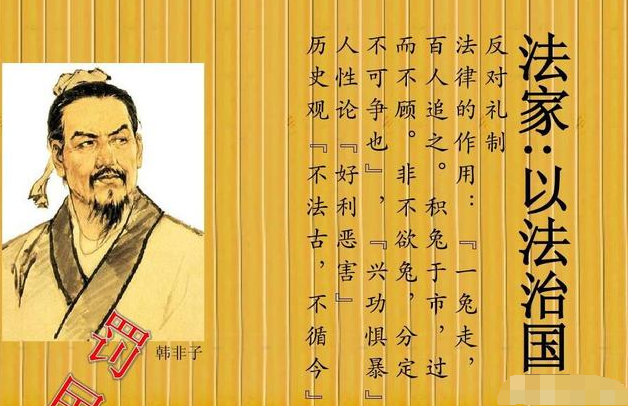 法家：以法治国
反对礼制
法律的作用：『一兔走，
百人追之。积兔于市，过
而不顾。非不欲兔，分定
不可争也』，『兴功惧暴』
人性论『好利恶害』
历史观『不法古，不循今』
韩非子
罚